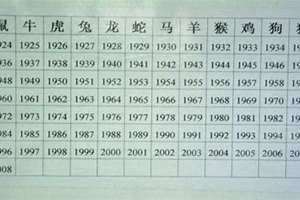 鼠 牛 虎 兔 龙 蛇 马 羊 猴 鸡 狗
924 1925 1926 1927 1928 1929 1930 1931 1932 1933 1934
936 1937 1938 1939 1940 1941 1942 1943 1944 1945 1946
948 1949 1950 1951 1952 1953 1954 1955 1956 1957 1958
960 1961 1962 1963 1964 1965 1966 1967 1968 1969 1970
972 1973 1974 1975 1976 1977 1978 1979 1980 1981 1982
984 1985 1986 1987 1988 1989 1990 1991 1992 1993 1994
996 1997 1998 1999 2000 2001 2002 2003 2004 2005 2006
008